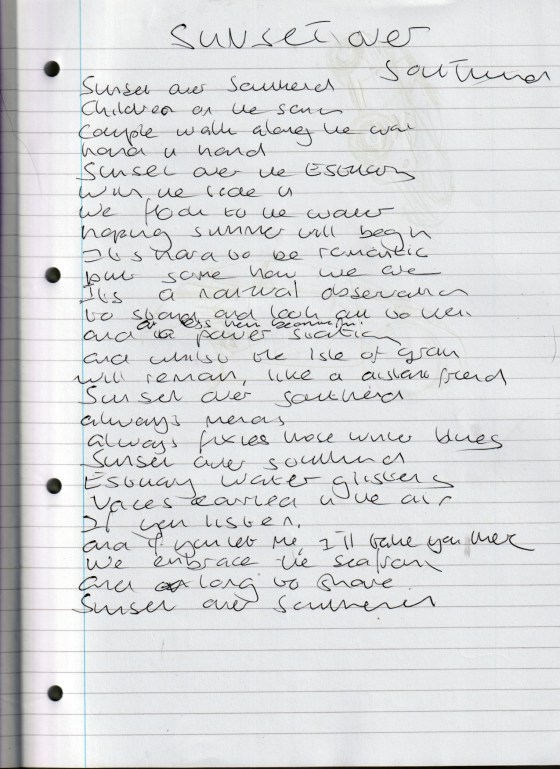 Sunset over
Southend
Sunset over Southend
Children on the sand
Couple walk along the
hand in hand
Sunset over the Estuary
with the tide in
we flock to the water
hoping summer will begin
It's hard to be romantic
but some how we are
Its a natural observation
to stand and look out to
and a less than beautiful power station
and whilst the Isle of grain
will remain, like a distant friend
Sunset over Southend
always mends
always fixies those winter blues
Sunset over Southend
Estuary water glistens
Voices carried in the air
If you listen,
and if you let me, I'll take you there
we embrace the seafront
and long to share
Sunset over Southend